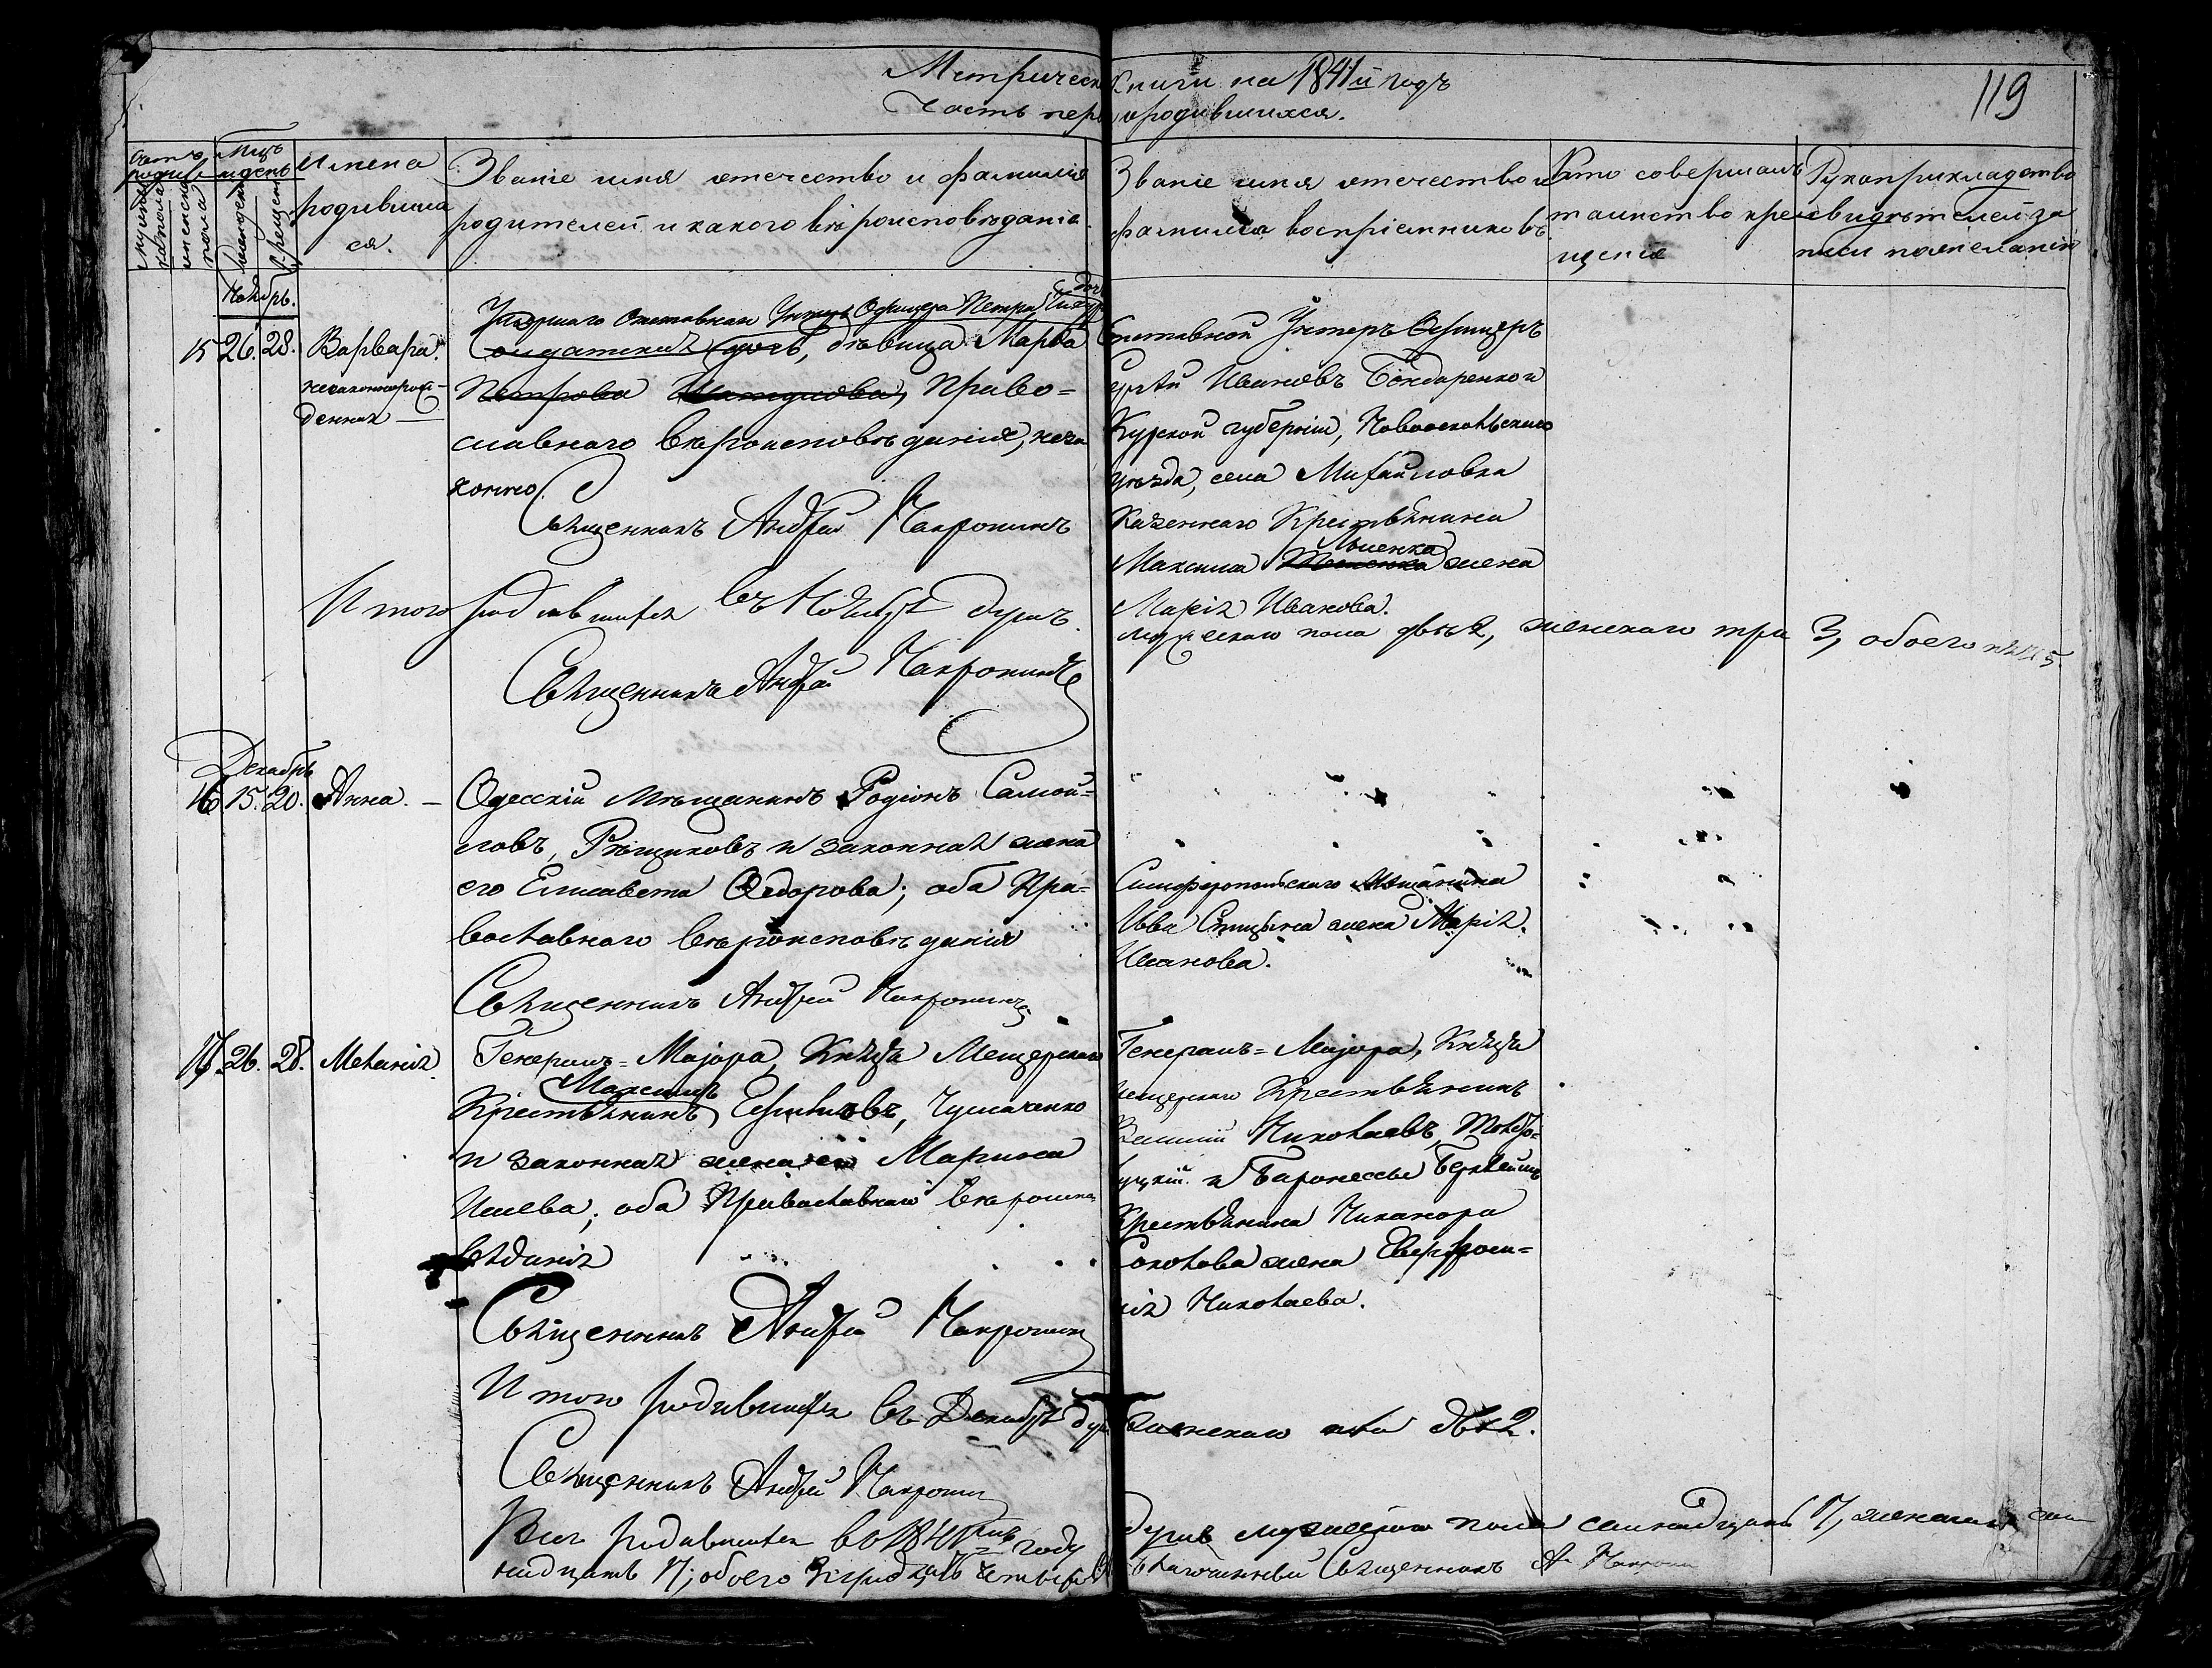 Метрическ Книги на 1841й годъ
119
Часть пер о родившихся.
Счетъ родив
мужеска пола
женска пола
Мцъ и день
рожденія
крещенія
Имена родивших ся.
Званіе имя отечество и фамилія
родителей и какого вѣроисповѣданія.
Званіе имя отечество и
фамилія воспріемниковъ
Кто совершалъ
таинство кре
щенія
Рукоприкладство
свидѣтелей за
писи по желанію
Ноябрь.
15 26. 28. Варвара
незаконнорож-
денная —
Умершаго Отставнаго Унтеръ Офицера Петра
Солдатская дочь, дѣвица Марѳа
Петрова Право=
славнаго вѣроисповѣданія, неза
конно
Священникъ Андрей Макропинъ
Отставной Унтеръ Офицеръ
Сергѣй Ивановъ Бондаренко и
Курской губерніи, Новооскольскаго
уѣзда, села Михайловка
Казеннаго Крестьянина
Максима жена
Марія Иванова.
Итого родившихся въ Ноябрѣ душъ
мужескаго пола двѣ 2, женскаго три 3, обоего пола 5
Священникъ Андрей Макропинъ
Декабрь
16 15. 20. Анна. —
Одесскій Мѣщанинъ Родіонъ Самой=
ловъ, Рѣщиковъ и законная жена
его Елисавета Ѳедорова; оба Пра=
вославнаго вѣроисповѣданія
Священникъ Андрей Макропинъ
Симферопольскаго Мѣщанина
Ивана Спицына жена Марія
Иванова.
17. 26. 28. Меланія.
Генералъ=Маіора, Князя Мещерскаго
Максимъ
Крестьянинъ Ефимовъ, Чумаченко
и законная жена его Марина
Ильева; оба Православнаго вѣроиспо
вѣданія
Священникъ Андрей Макропинъ
Генералъ=Маіора, Князя
Мещерскаго Крестьянинъ
Василій Николаевъ,
и Баронессы
Крестьянина Никанора
Соколова жена Евфроси=
нія Николаева.
Итого родившихся въ Декабрѣ душъ женскаго пола двѣ 2.
Священникъ Андрей Макропинъ
Всего родившихся въ 1841мъ году душъ мужескаго пола семнадцать 17, женскаго сем
надцать 17; обоего тридцать четыре
Благочинный Священникъ А. Макропинъ